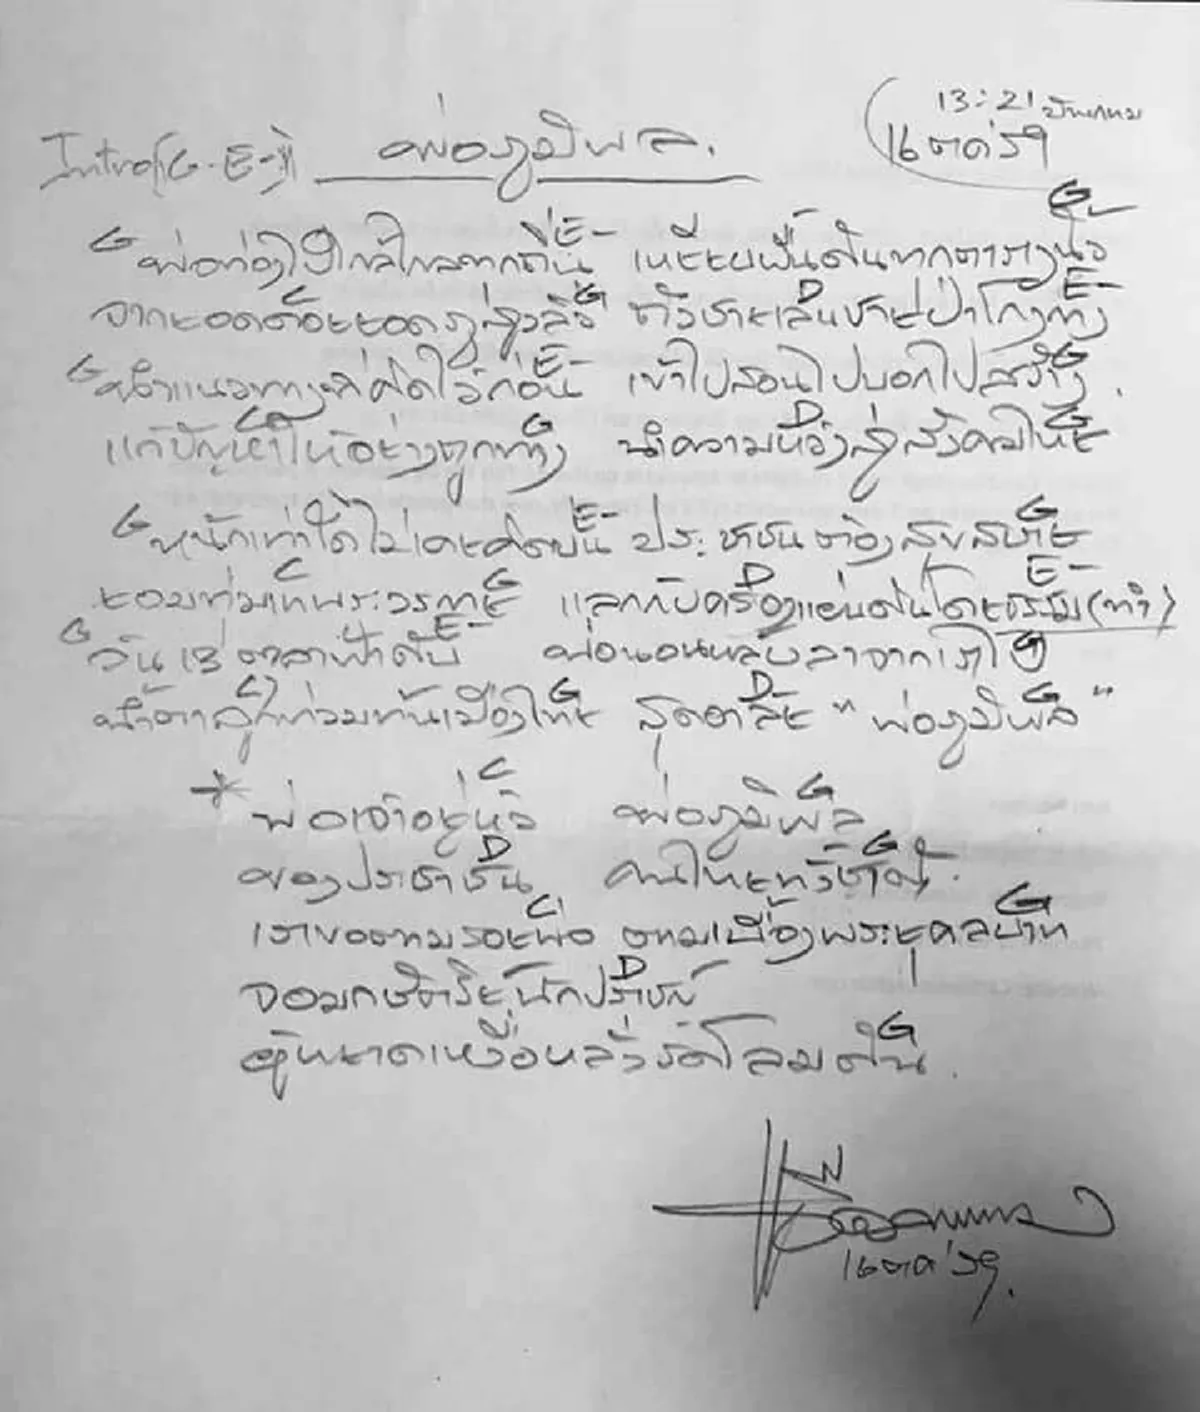 13:21
Intro(G-E-) พ่อภูมิพล. 16 ตค 59
G E- G
พ่อท่องไปใกล้ไกลทุกถิ่น เหยียบผืนดินทุกตารางนิ้ว
G D E-
จากยอดดอยยอดภูสูงลิ่ว ตัวชายเลนชายป่าโกงกาง
G E- G
นำแนวทางที่คิดไว้ก่อนนี้ เข้าไปสอนไปบอกไปสร้าง
C G D G
แก้ปัญหาให้อย่างถูกทาง นำความหวังสู่สังคมไทย
G E- G
หนักเท่าใดไม่เคยคิดบ่น ประชาชนต้องสุขสบาย
C G D E-
ยอมทุ่มเทพระวรกาย แลกกับครองแผ่นดินโดยธรรม (ทำ)
G E- G
วัน 13 ตุลาฟ้าดับ พ่อนอนหลับลาจากเราไป
C G D G
น้ำตาลูกท่วมท้นเมืองไทย สุดอาลัย "พ่อภูมิพล"
C G
* พ่อเจ้าอยู่หัว พ่อภูมิพล
D G
ของประชาชน คนไทยทั่วชาติ
C G
เราขอตามรอยพ่อ ตามเบื้องพระยุคลบาท
D
จอมกษัตริย์นักปราชญ์
G
ผู้หยาดเหงื่อหลั่งรดโลมดิน.
16 ตค 59.